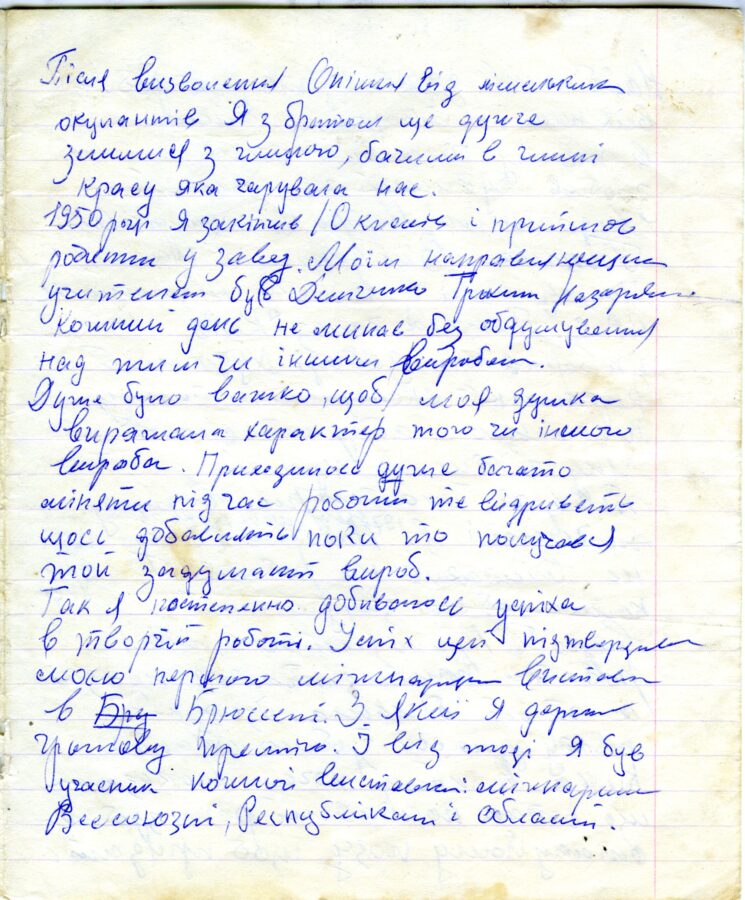 Після визволення Опішня від німецьких
окупантів Я з братом ще дужче
зжилися з глиною, бачили в глині
красу яка чарувала нас.
1950 році Я закінчив 10 класів і прийшов
робити у завод. Моїм направляющим
учителем був Демченко Трохим Назарович
Кожний день не минав без обдумування
над тим чи іншим виробом.
Дуже було важко, щоб моя думка
виражала характер того чи іншого
вироба. Приходилось дуже багато
міняти під час роботи те відривать
щось добавлять поки то получався
той задуманий вироб.
Так я постепенно добивалось успіха
в творчій роботі. Успіх цей підтвердила
мою першою міжнародна виставка
в Брю Брюсселі. З якої Я держав
грошову премію. І від тоді Я був
учасник кожної виставки: міжнародні
Всесоюзні, Республікані і обласні.